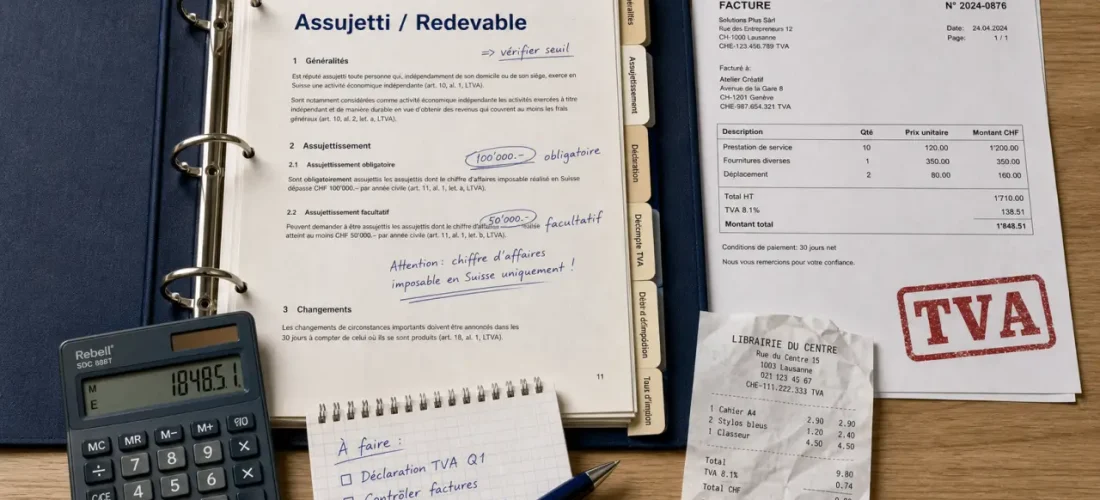 Assujetti / Redevable
=> vérifier seuil
1 Généralités
Est réputé assujetti toute personne qui, indépendamment de son domicile ou de son siège, exerce en
Suisse une activité économique indépendante (art. 10, al. 1, LTVA).
Sont notamment considérées comme activité économique indépendante les activités exercées à titre
indépendant et de manière durable en vue d'obtenir des revenus qui couvrent au moins les frais
généraux (art. 10, al. 2, let. a, LTVA).
2 Assujettissement
2.1 Assujettissement obligatoire
100'000.- obligatoire
Sont obligatoirement assujettis les assujettis dont le chiffre d'affaires imposable réalisé en Suisse
dépasse CHF 100'000.– par année civile (art. 11, al. 1, let. a, LTVA).
2.2 Assujettissement facultatif
50'000.- facultatif
Peuvent demander à être assujettis les assujettis dont le chiffre d'affaires
atteint au moins CHF 50'000.– par année civile (art. 11, al. 1, let. b, LTVA).
Attention : chiffre d'affaires
imposable en Suisse uniquement !
3 Changements
Les changements de circonstances importants doivent être annoncés dans les
30 jours à compter de celui où ils se sont produits (art. 18, al. 1, LTVA).
11
Assujettissement
Déclaration
Décompte TVA
FACTURE
N° 2024-0876
Solutions Plus Sàrl
Rue des Entrepreneurs 12
CH-1000 Lausanne
CHE-123.456.789 TVA
Date: 24.04.2024
Page: 1 / 1
Facturé à:
Atelier Créatif
Avenue de la Gare 8
CH-1201 Genève
CHE-987.654.321 TVA
Description Qté Prix unitaire Montant CHF
Prestation de service 10 120.00 1'200.00
Fournitures diverses 1 350.00 350.00
Déplacement 2 80.00 160.00
Total HT 1'710.00
TVA 8.1% 138.51
Montant total 1'848.51
Conditions de paiement: 30 jours net
Nous vous remercions pour votre confiance.
TVA
Rebell
SDC 886T
M
E
1848.51
MC MR M– M+
÷ 7 8 9 ×
C/CE 4 5 6 ×
À faire :
Déclaration TVA Q1
Contrôler factures
LIBRAIRIE DU CENTRE
Rue du Centre 15
1003 Lausanne
021 123 45 67
CHE-111.222.333 TVA
1 Cahier A4 2.90 2.90
2 Stylos bleus 1.20 2.40
1 Classeur 4.50 4.50
Total 9.80
TVA 8.1% 0.74
Total CHF